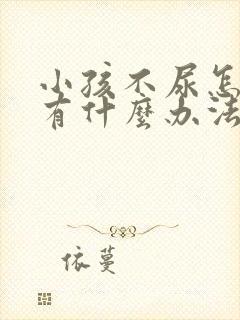 小孩不尿怎
有什麼办法
依蔓